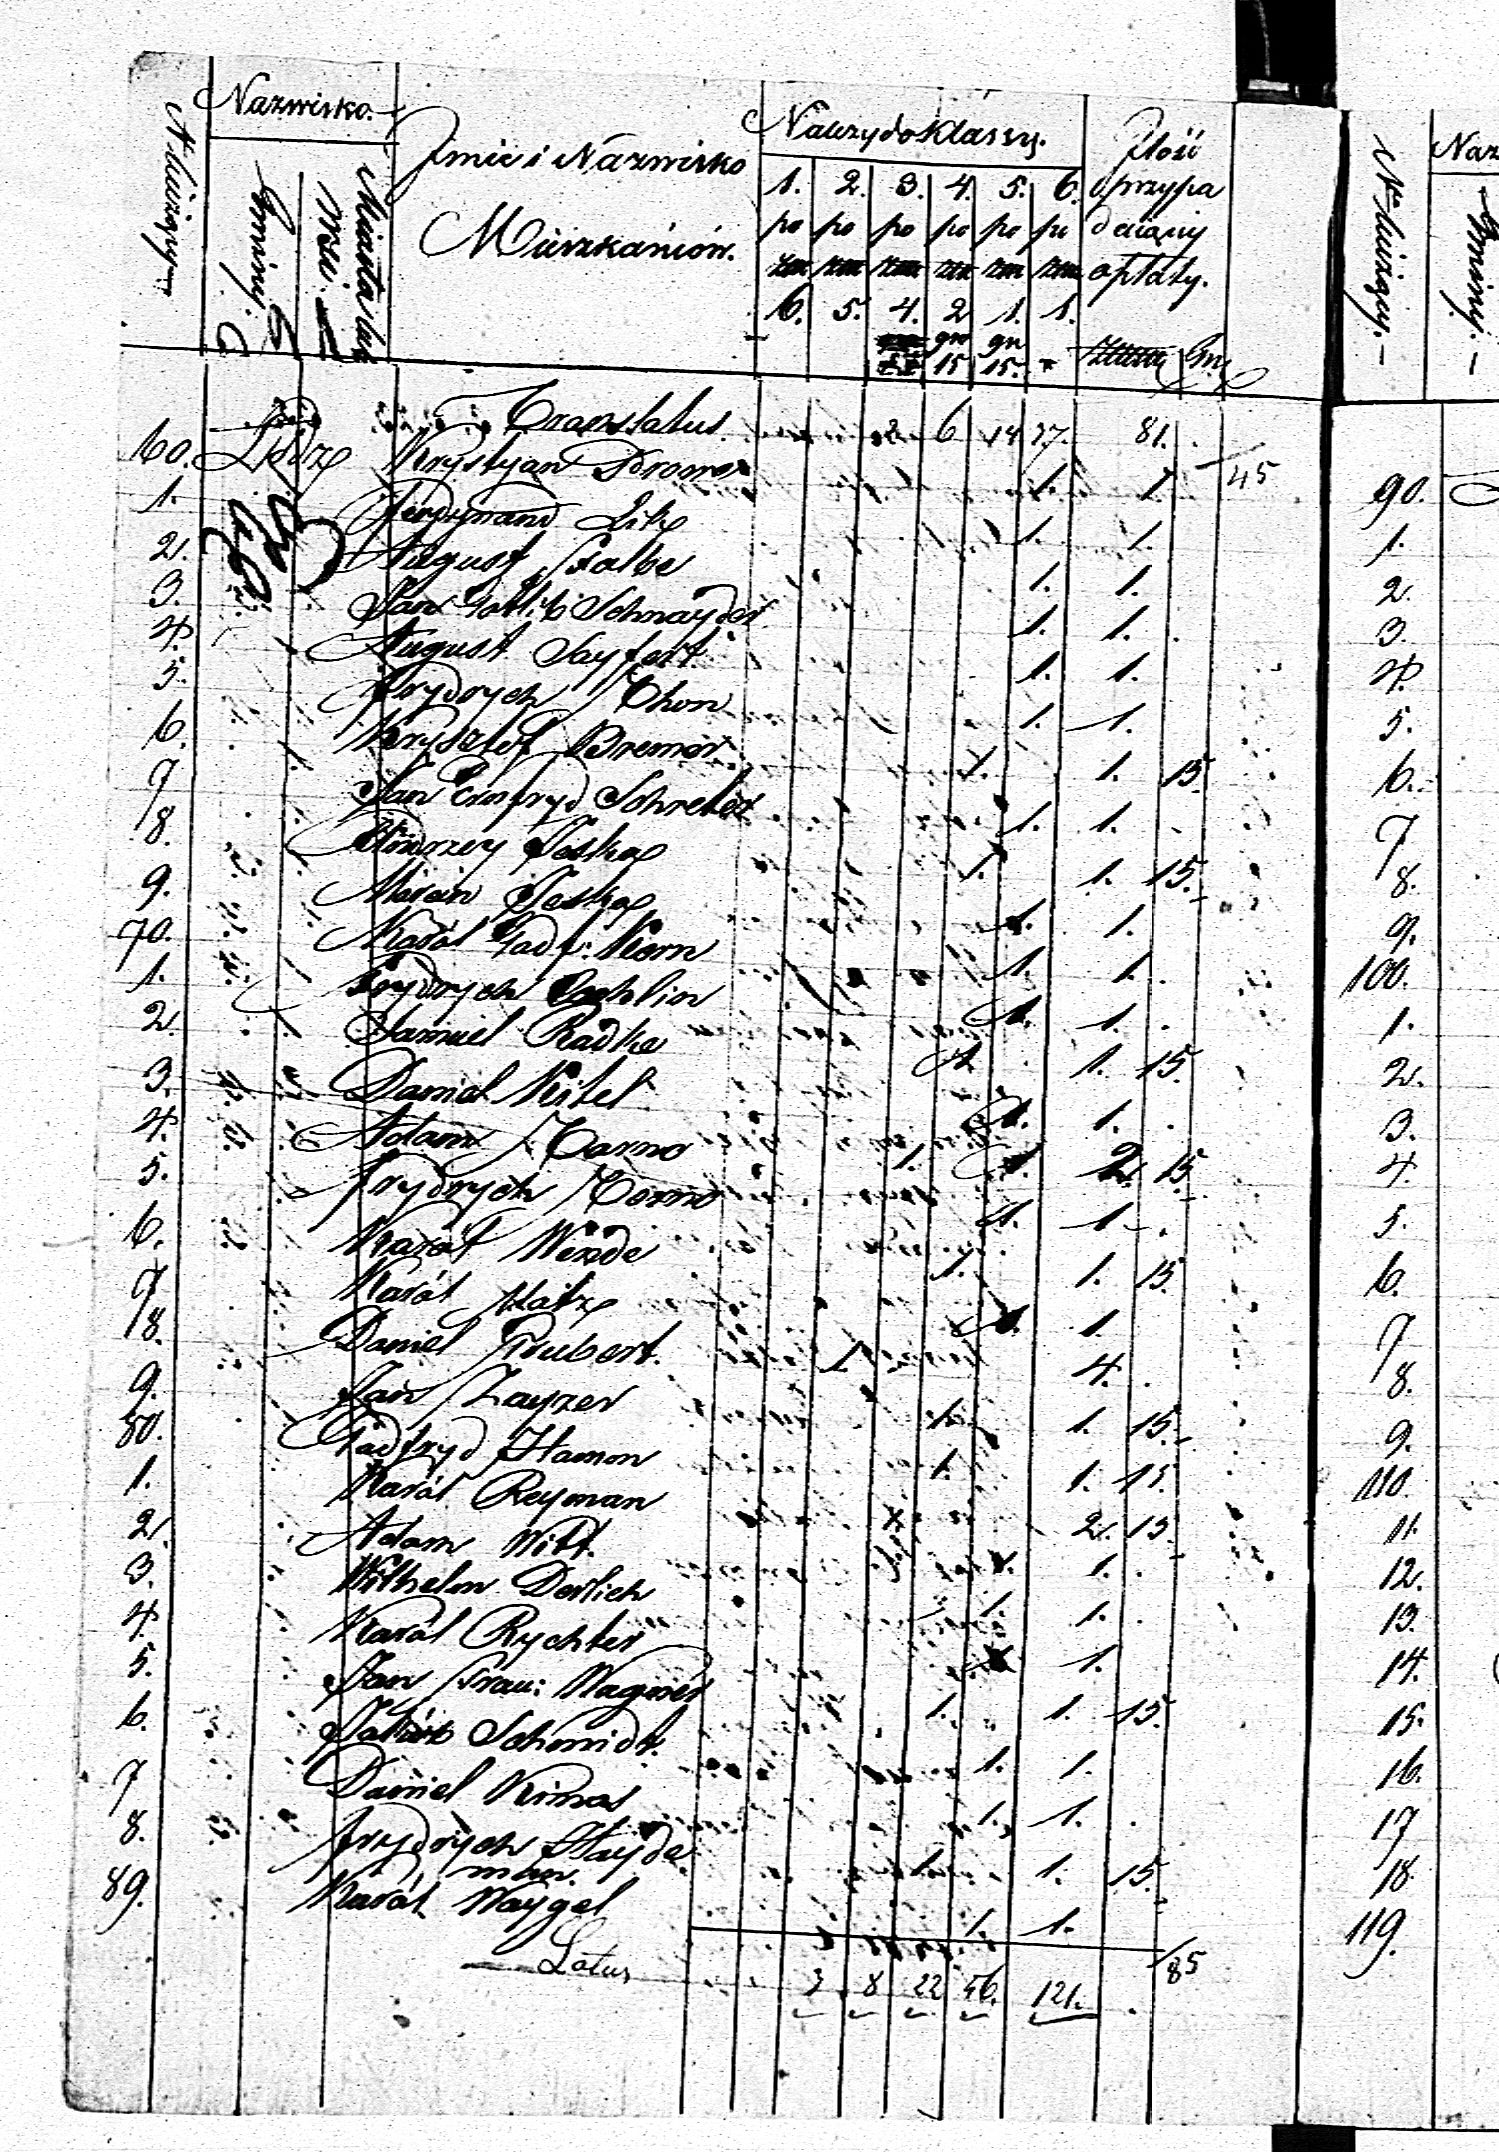 Nazwisko.
Imie i Nazwisko
Mieszkańców.
Należy do Klassy.
Ilość
przypa
daiący
opłaty.
1. 2. 3. 4. 5. 6.
po po po po po po
6. 5. 4. 2 1. 1.
gn gn
15 15.
Gminy.
Wsi.
Miasta lub
N° bieżący
Translatus 6 14 37. 81.
60. Krystyan 1. 1 45
1. Ferdynand 1. 1.
2. August Kalbe 1. 1.
3. Jan Gotlib Schnayder 1. 1.
4. August Sayfert 1. 1.
5. Frydrych Thom 1. 1.
6. Krysztof Bremer 1. 1. 15.
7 Jan Ernfryd Schreiber 1. 1.
8. Andrzey Jeske 1. 1. 15.
9. Marcin Jeske 1. 1.
70. Karól Gadf: Korn 1. 1.
1. Frydrych 1. 1.
2. Samuel Radke 1. 1. 15.
3. Daniel Kitel 1. 1.
4. Adam 1. 1. 2. 15.
5. Frydrych 1. 1.
6. Karól Wende 1. 1. 15
7 Karól 1. 1.
8. Daniel 1 4.
9. Jan Zayzer 1. 1. 15.
80. Gadfryd Hamon 1. 1. 15.
1. Karól Reyman 2. 15
2. Adam Witt. 1. 1.
3. Wilhelm Derlich 1. 1.
4. Karól Rychter 1. 1.
5. Jan Frau: Wagner 1. 1. 15.
6. Jakub Schmidt. 1. 1.
7 Daniel Kimas 1. 1.
8. Frydrych Hayde
man. 1. 1. 15.
89. Karól Waygel 1. 1.
Latus 3 8 22 56. 121. 85
N° bieżący.
Gminy.
90.
1.
2.
3.
4.
5.
6.
7
8.
9.
100.
1.
2.
3.
4.
5.
6.
7
8.
9.
110.
11.
12.
13.
14.
15.
16.
17
18.
119.